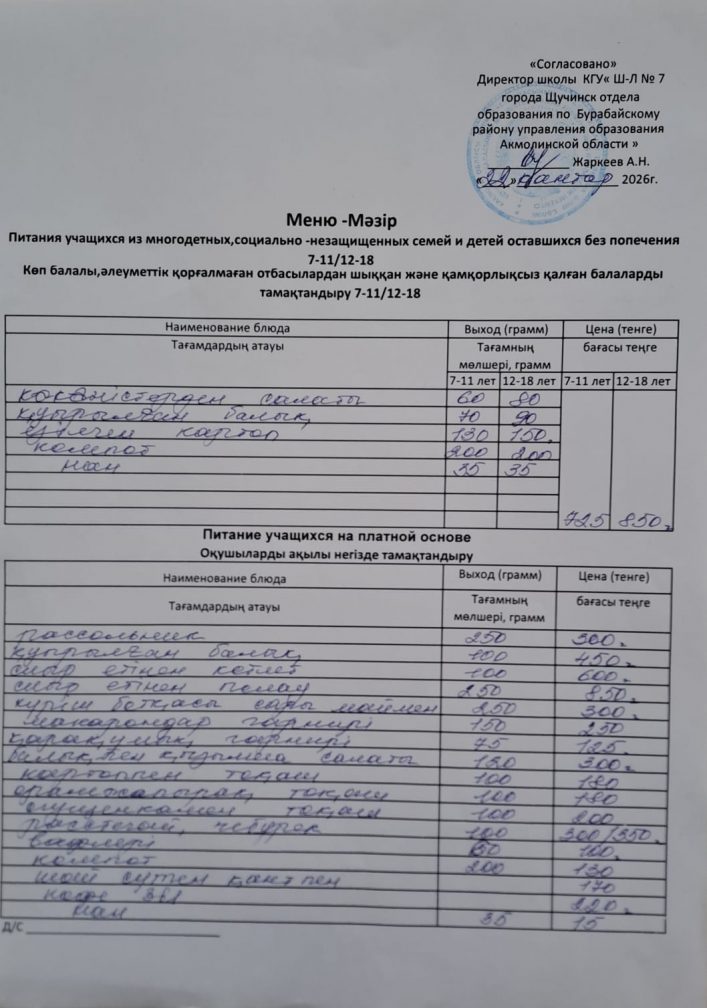 «Согласовано»
Директор школы КГУ« Ш-Л № 7
города Щучинск отдела
образования по Бурабайскому
району управления образования
Акмолинской области »
____________ Жаркеев А.Н.
«22»қаңтар 2026г.
Меню -Мәзір
Питания учащихся из многодетных,социально -незащищенных семей и детей оставшихся без попечения
7-11/12-18
Көп балалы,әлеуметтік қорғалмаған отбасылардан шыққан және қамқорлықсыз қалған балаларды
тамақтандыру 7-11/12-18
Наименование блюда Выход (грамм) Цена (тенге)
Тағамдардың атауы Тағамның мөлшері, грамм бағасы теңге
7-11 лет 12-18 лет 7-11 лет 12-18 лет
көкөністерден салаты 60 80
қуырылған балық 70 90
езілген картоп 130 150
компот 200 200
нан 35 35
725 850
Питание учащихся на платной основе
Оқушыларды ақылы негізде тамақтандыру
Наименование блюда Выход (грамм) Цена (тенге)
Тағамдардың атауы Тағамның мөлшері, грамм бағасы теңге
рассольник 250 300
қуырылған балық 100 450
сиыр етінен котлет 100 600
сиыр етінен полау 250 850
күріш ботқасы сары маймен 250 300
макарондар гарнирі 150 250
қарақұмық гарнирі 75 125
балық пен қызылша салаты 130 300
картоппен тоқаш 100 180
орамжапырақ тоқаш 100 180
сгущенкамен тоқаш 100 200
расстегай, чебурек 100 300/350
вафлері 50 100
компот 200 130
шай сүтпен қантпен 170
кофе 3в1 220
нан 35 15
Д/С